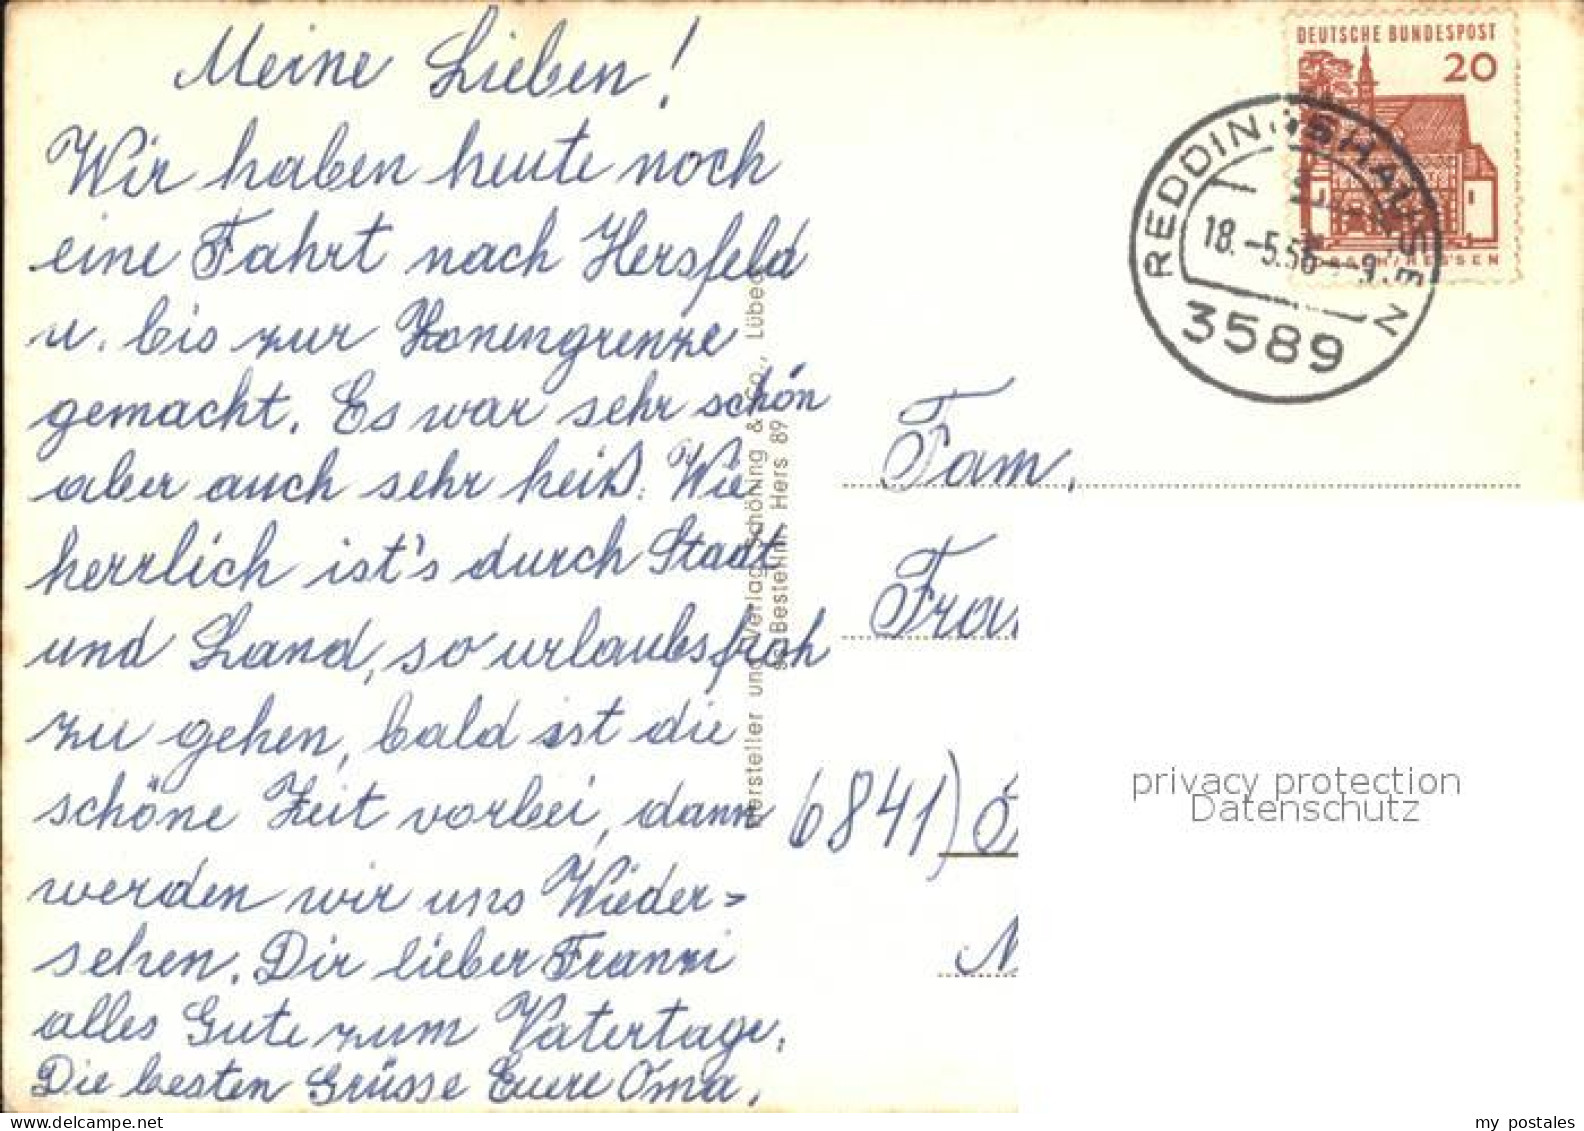 Meine Lieben!
Wir haben heute noch
eine Fahrt nach Hersfeld
u. bis zur Zonengrenze
gemacht. Es war sehr schön
aber auch sehr heiß. Wie
herrlich ist's durch Stadt
und Land, so urlaubsfroh
zu gehen, bald ist die
schöne Zeit vorbei, dann
werden wir uns Wieder=
sehen. Dir lieber Franzi
alles Gute zum Vatertage.
Die besten Grüsse Euere Oma.
Hersteller und Verlag Schöning & Co., Lübeck
Bestellnr. Hers 89
DEUTSCHE BUNDESPOST
20
LORSCH/HESSEN
REDDINGSHAUSEN
18.-5.5 -9
3589
Fam.
6841)
privacy protection
Datenschutz
my postales